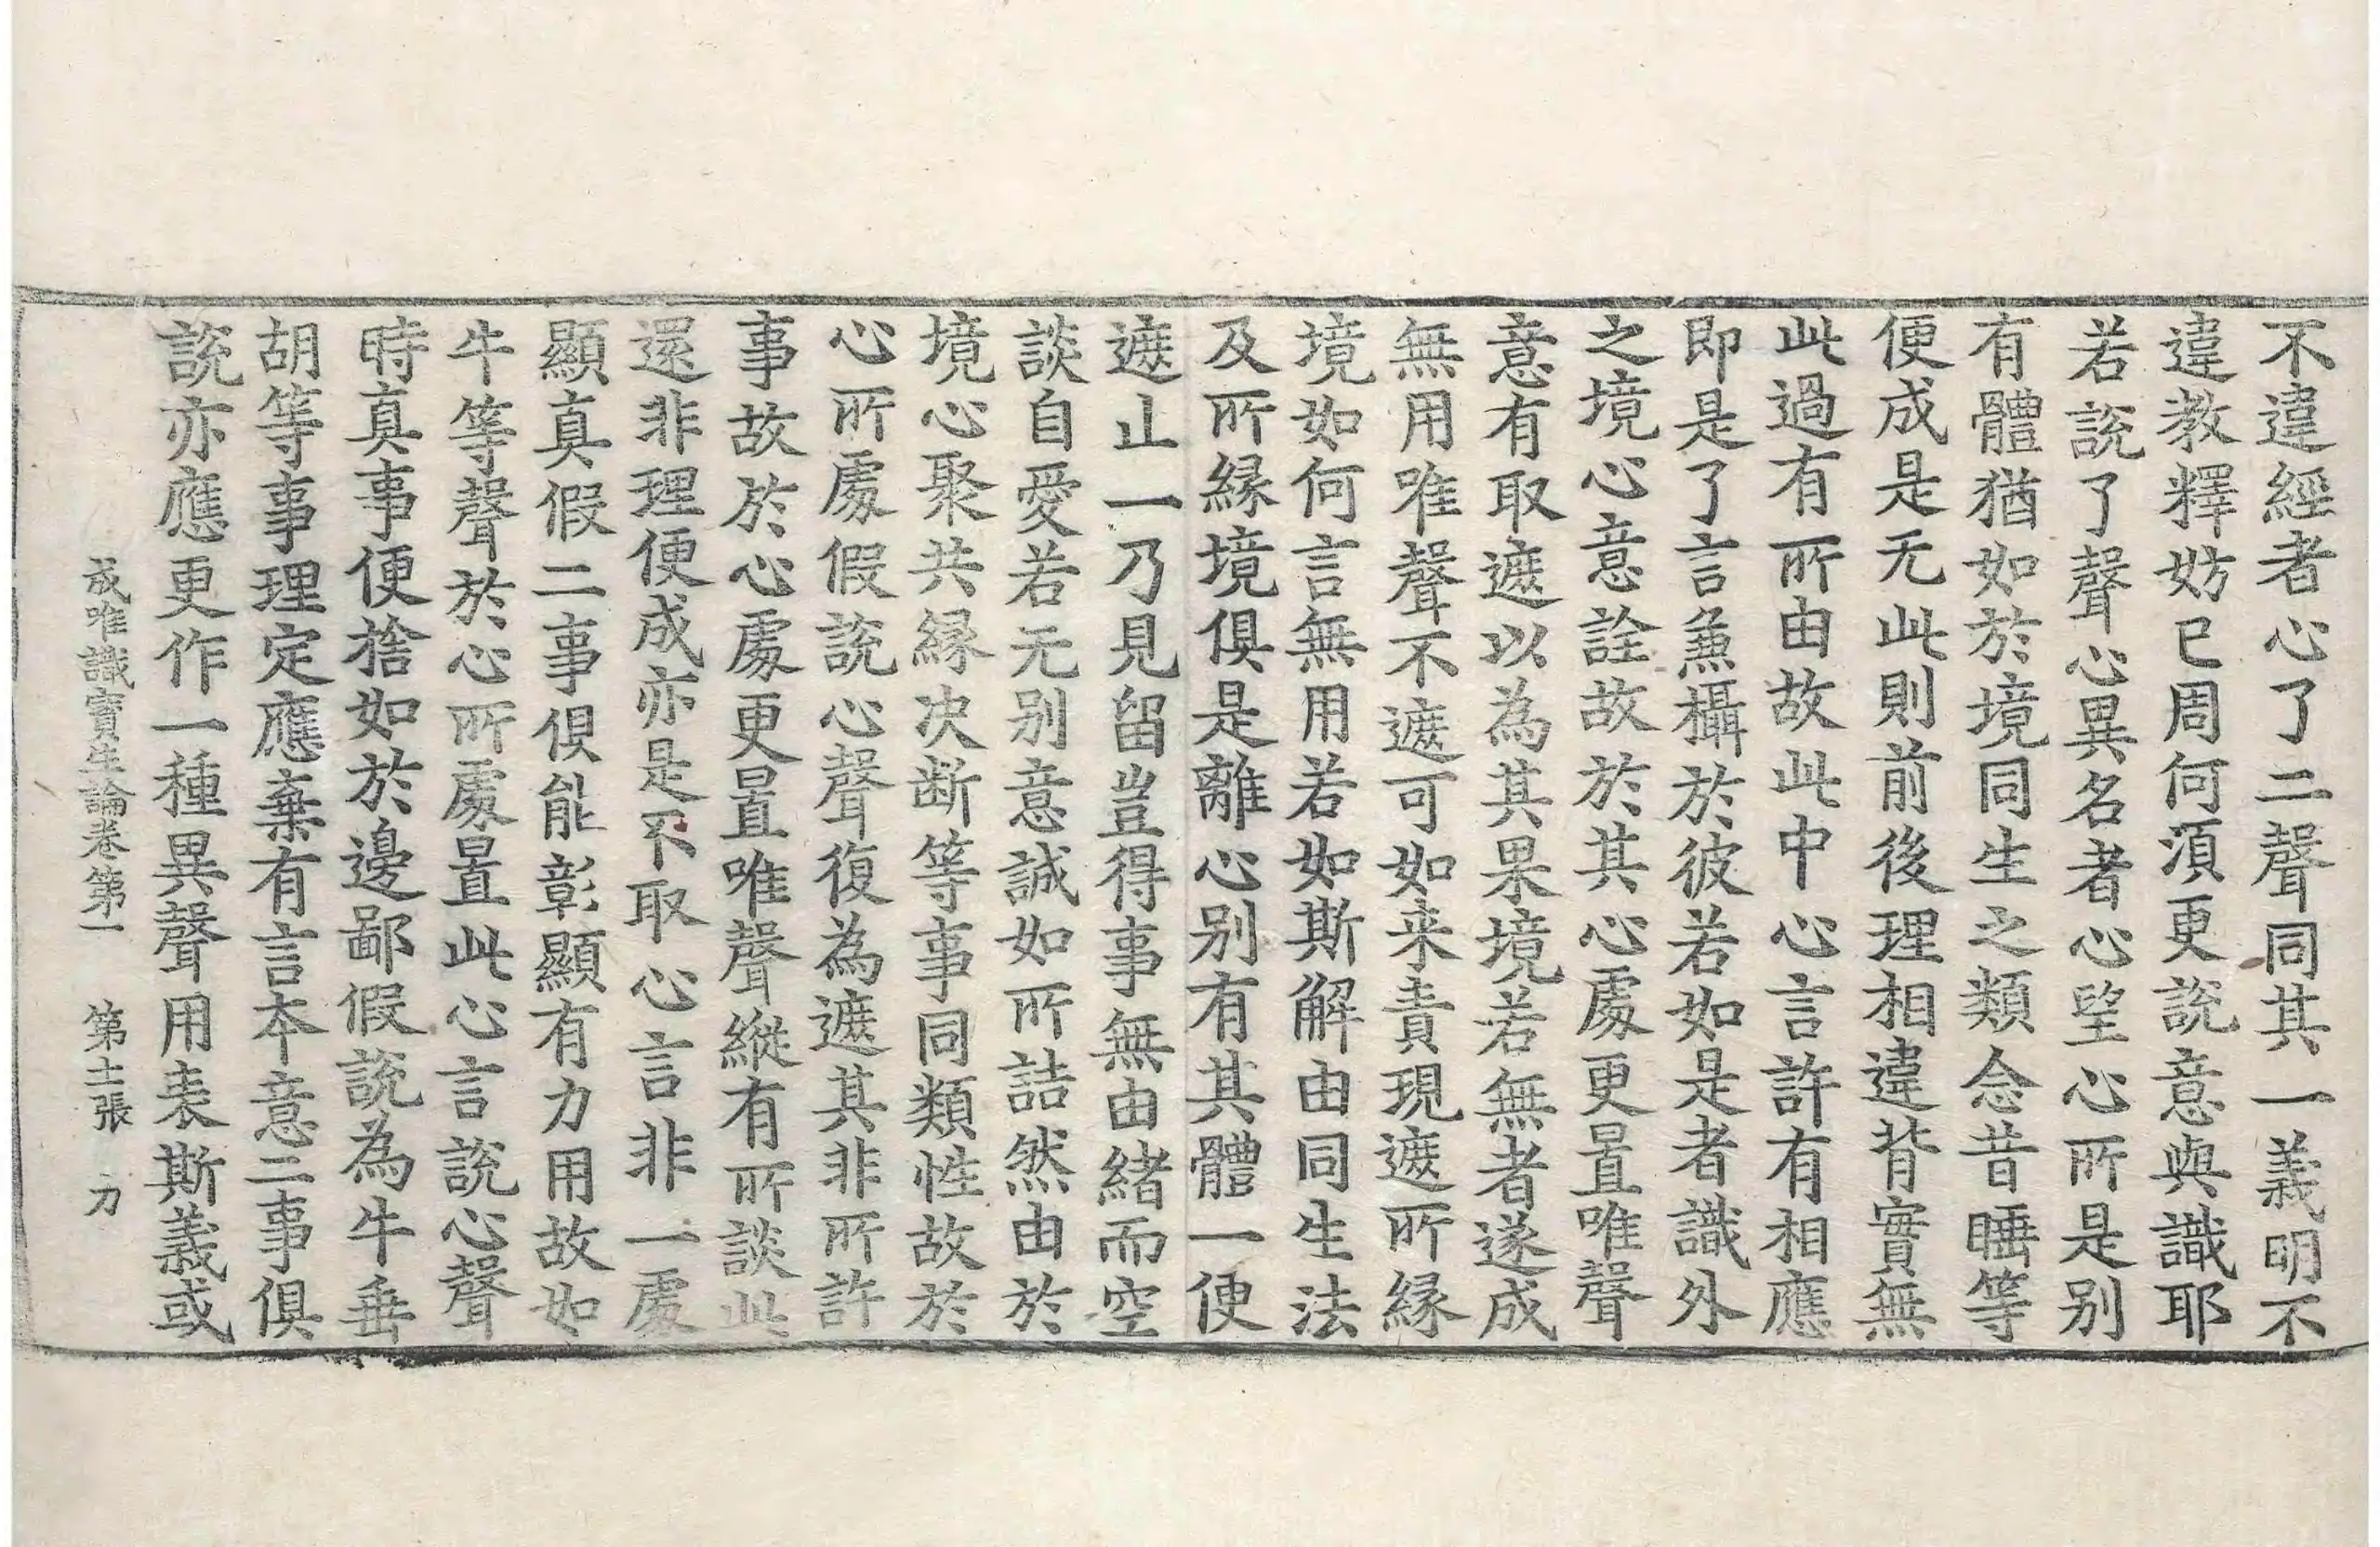 不違經者心了二聲同其一義明不
違教釋妨已周何湏更說意與識耶
若說了聲心異名者心望心所是别
有體猶如於境同生之類念昔睡等
便成是无此則前後理相違背實無
此過有所由故此中心言許有相應
即是了言兼攝於彼若如是者識外
之境心意詮故於其心處更置唯聲
意有取遮以為其果境若無者遂成
無用唯聲不遮可如来責現遮所縁
境如何言無用若如斯解由同生法
及所縁境俱是離心别有其體一便
遮止一乃見留豈得事無由緒而空
談自愛若无别意誠如所詰然由於
境心聚共縁决断等事同類性故於
心所處假說心聲復為遮其非所許
事故於心處更置唯聲縱有所談此
還非理便成亦是不取心言非一處
顯真假二事俱能彰顯有力用故如
牛等聲於心所處置此心言說心聲
時真事便捨如於邊鄙假說為牛垂
胡等事理定應棄有言本意二事俱
說亦應更作一種異聲用表斯義或
成唯識寶生論卷第一 第十二張 刀